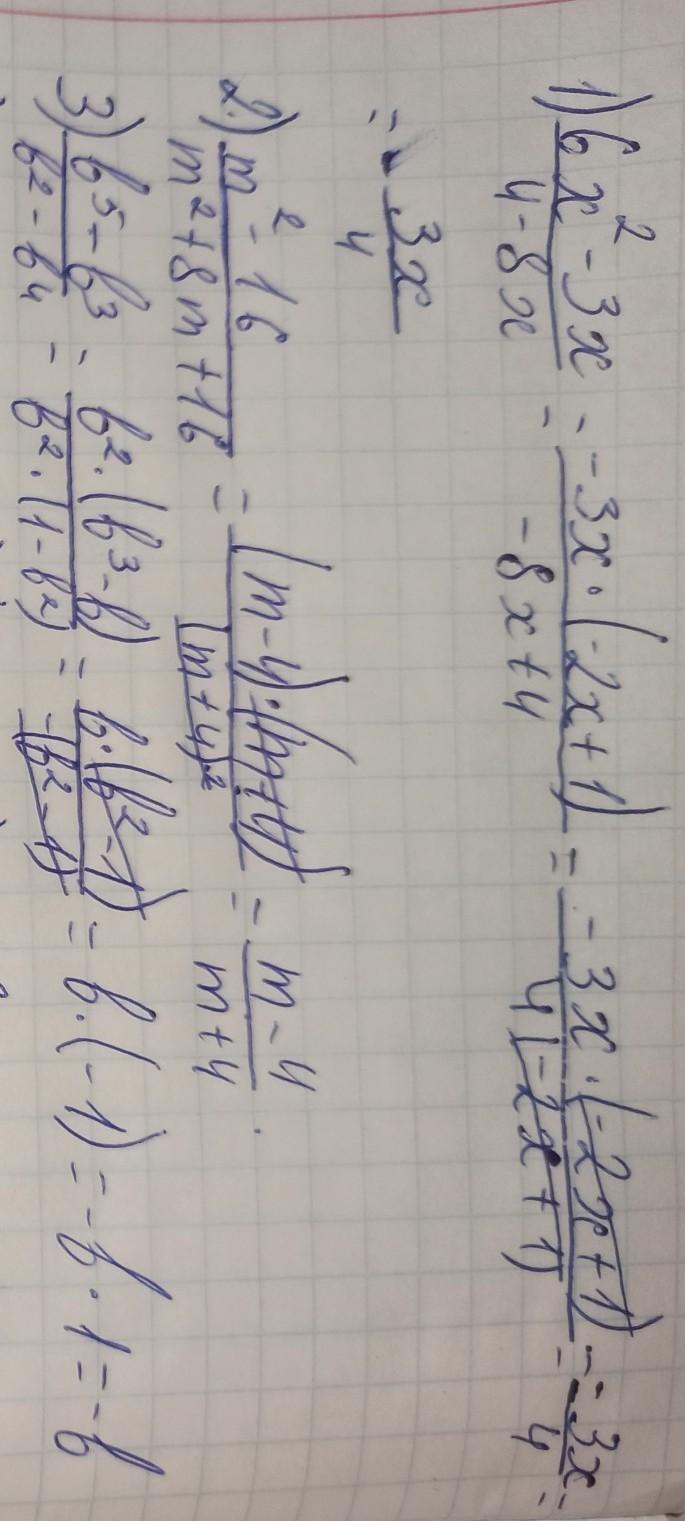 1) (6x² - 3x)/(4 - 8x) = (-3x·(-2x+1))/(-8x+4) = (-3x·(-2x+1))/(4(-2x+1)) = (-3x)/4 =
= - 3x/4
2.) (m² - 16)/(m² + 8m + 16) = ((m-4)·(m+4))/(m+4)² = (m-4)/(m+4).
3) (b⁵ - b³)/(b² - b⁴) = (b²·(b³-b))/(b²·(1-b²)) = (b·(b²-1))/(-(b²-1)) = b·(-1) = -b·1 = -b